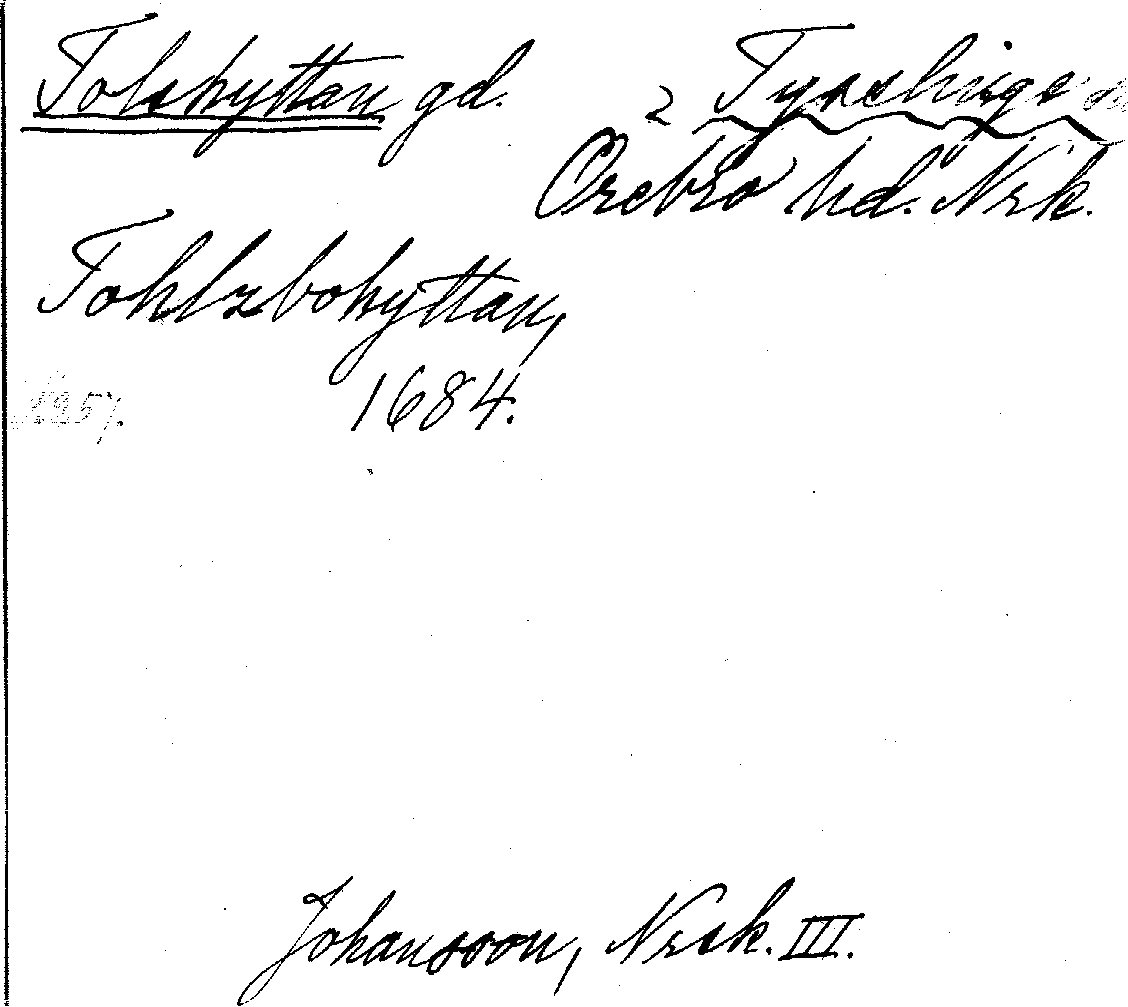 Tolshyttan gd. 2 Tysslinge sn
Örebro hd. Nrk.
Tohlzbohyttan,
1684.
1257.
Johansson, Nrsk. III.